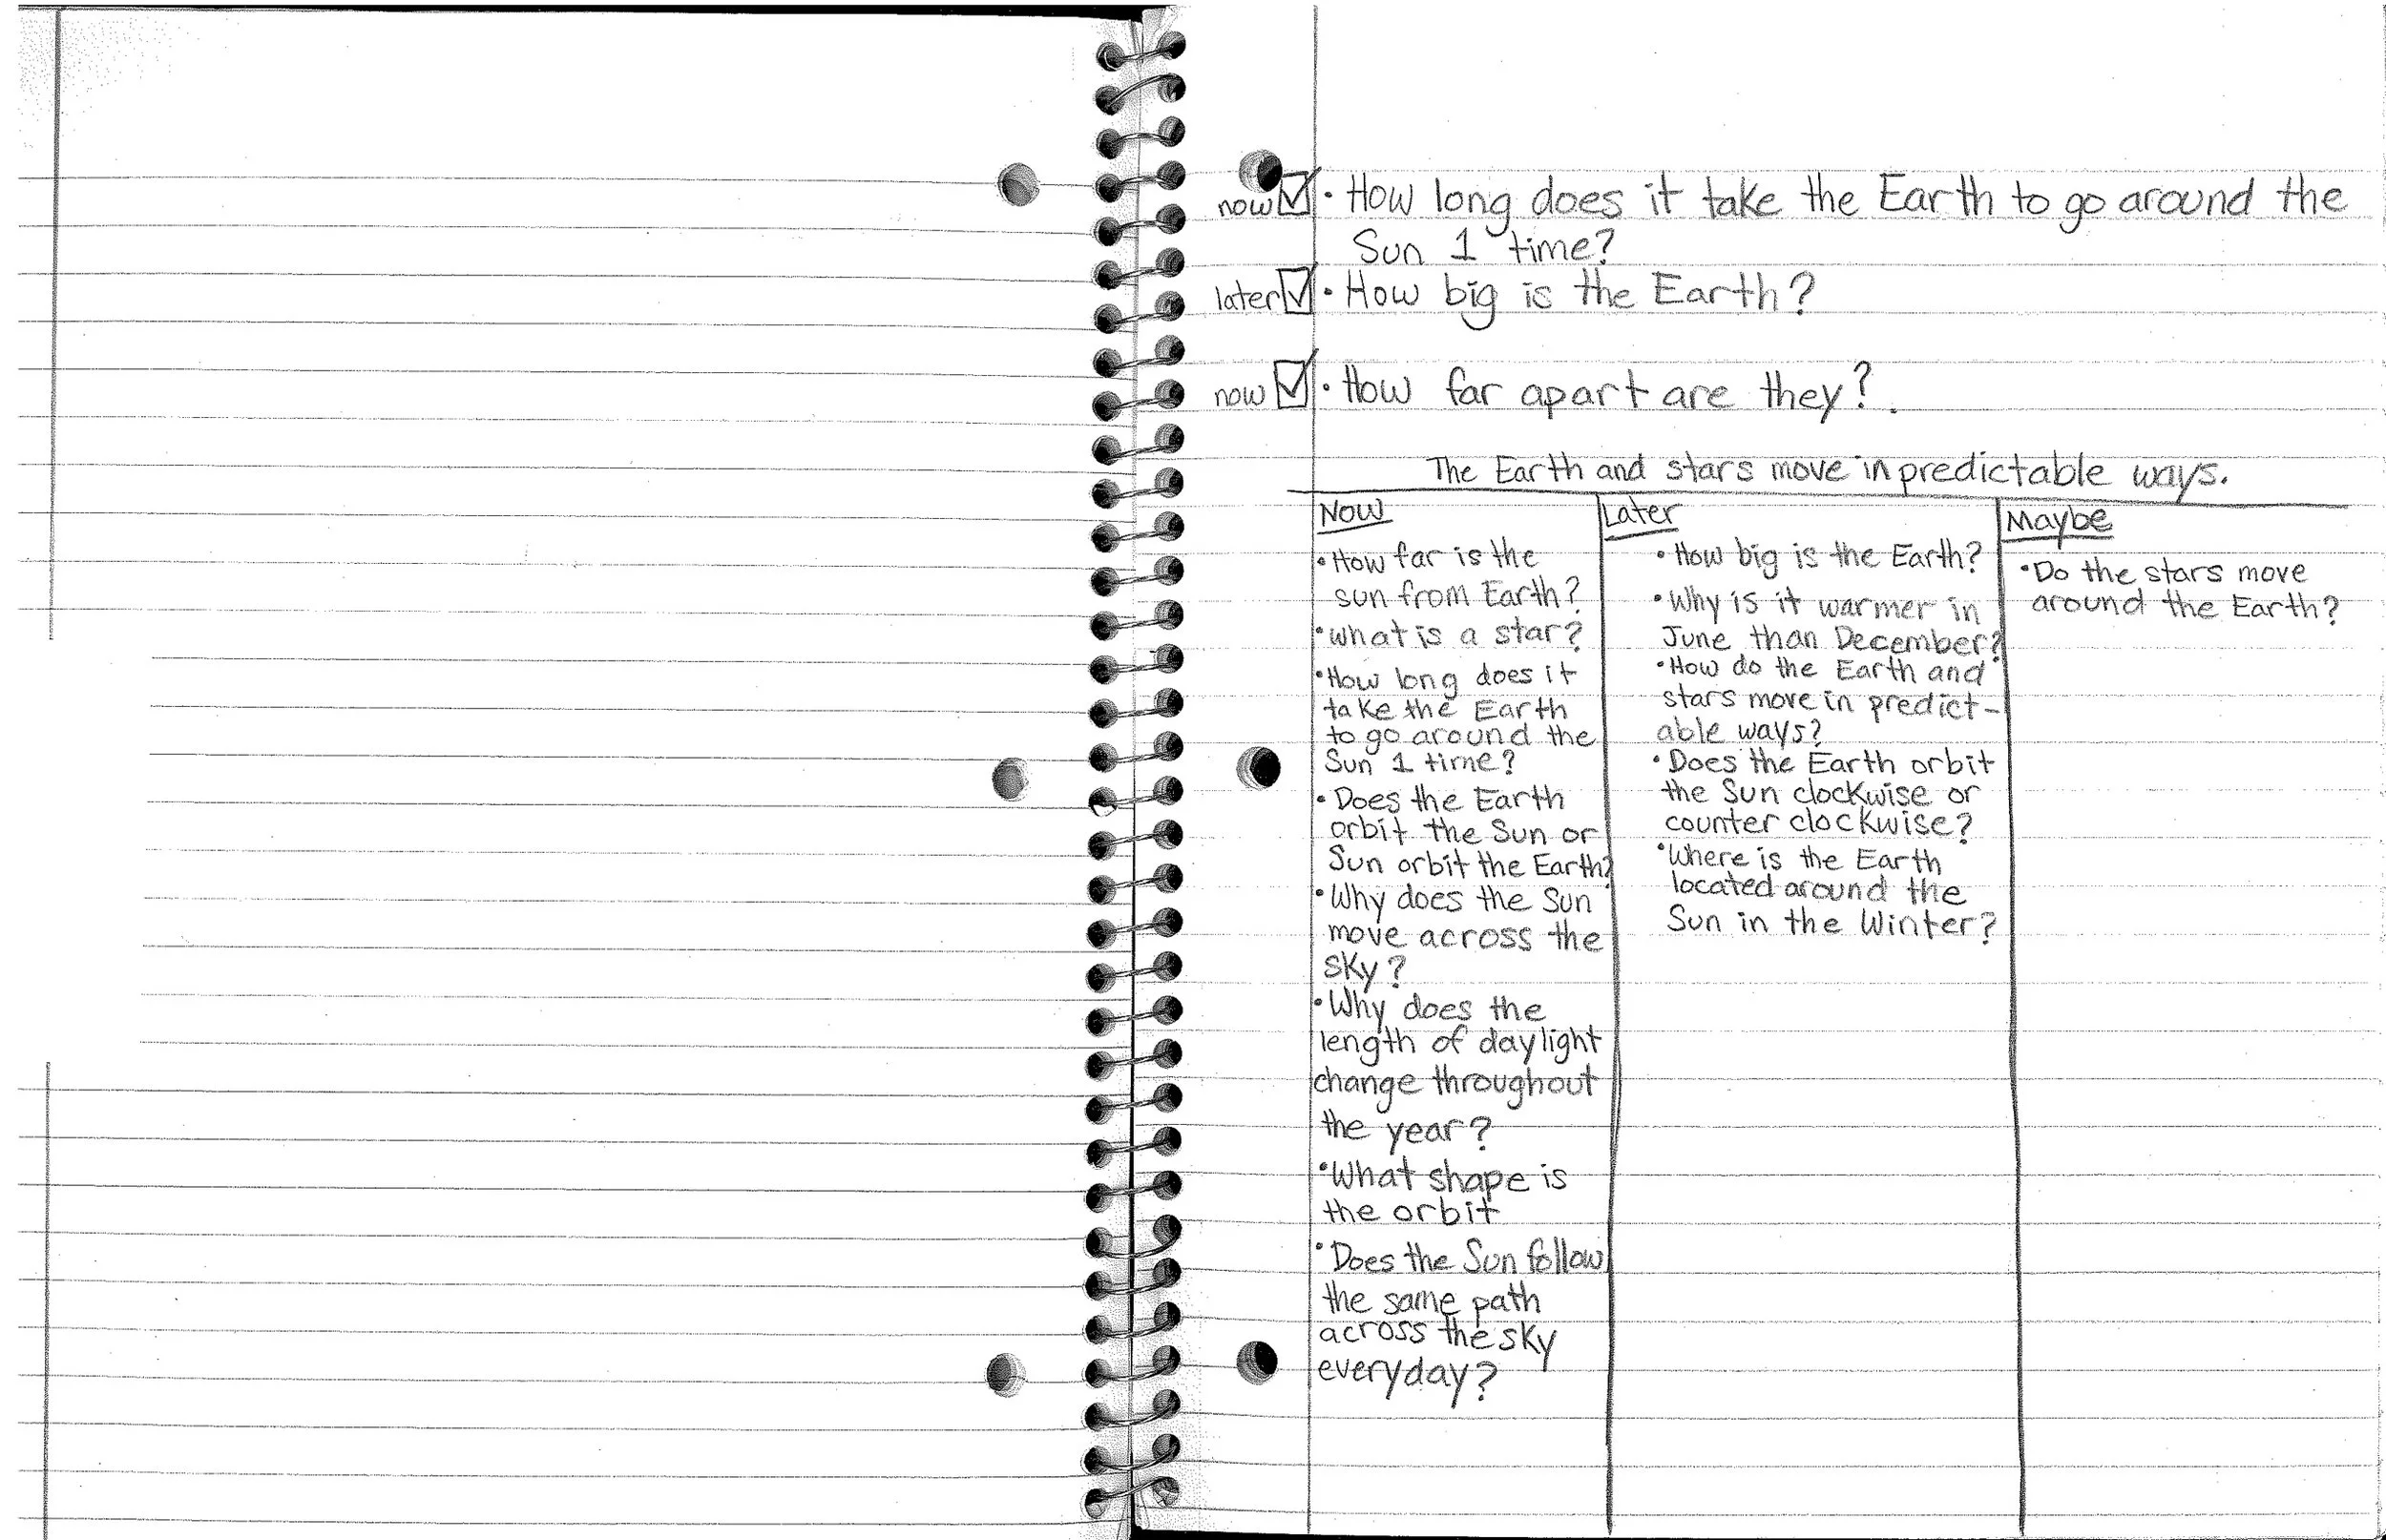 now ☑ • How long does it take the Earth to go around the
Sun 1 time?
later ☑ • How big is the Earth?
now ☑ • How far apart are they?
The Earth and stars move in predictable ways.
Now
• How far is the
sun from Earth?
• What is a star?
• How long does it
take the Earth
to go around the
Sun 1 time?
• Does the Earth
orbit the Sun or
Sun orbit the Earth?
• Why does the Sun
move across the
sky?
• Why does the
length of daylight
change throughout
the year?
• What shape is
the orbit
• Does the Sun follow
the same path
across the sky
everyday?
Later
• How big is the Earth?
• Why is it warmer in
June than December?
• How do the Earth and
stars move in predict-
able ways?
• Does the Earth orbit
the Sun clockwise or
counter clockwise?
• Where is the Earth
located around the
Sun in the Winter?
Maybe
• Do the stars move
around the Earth?